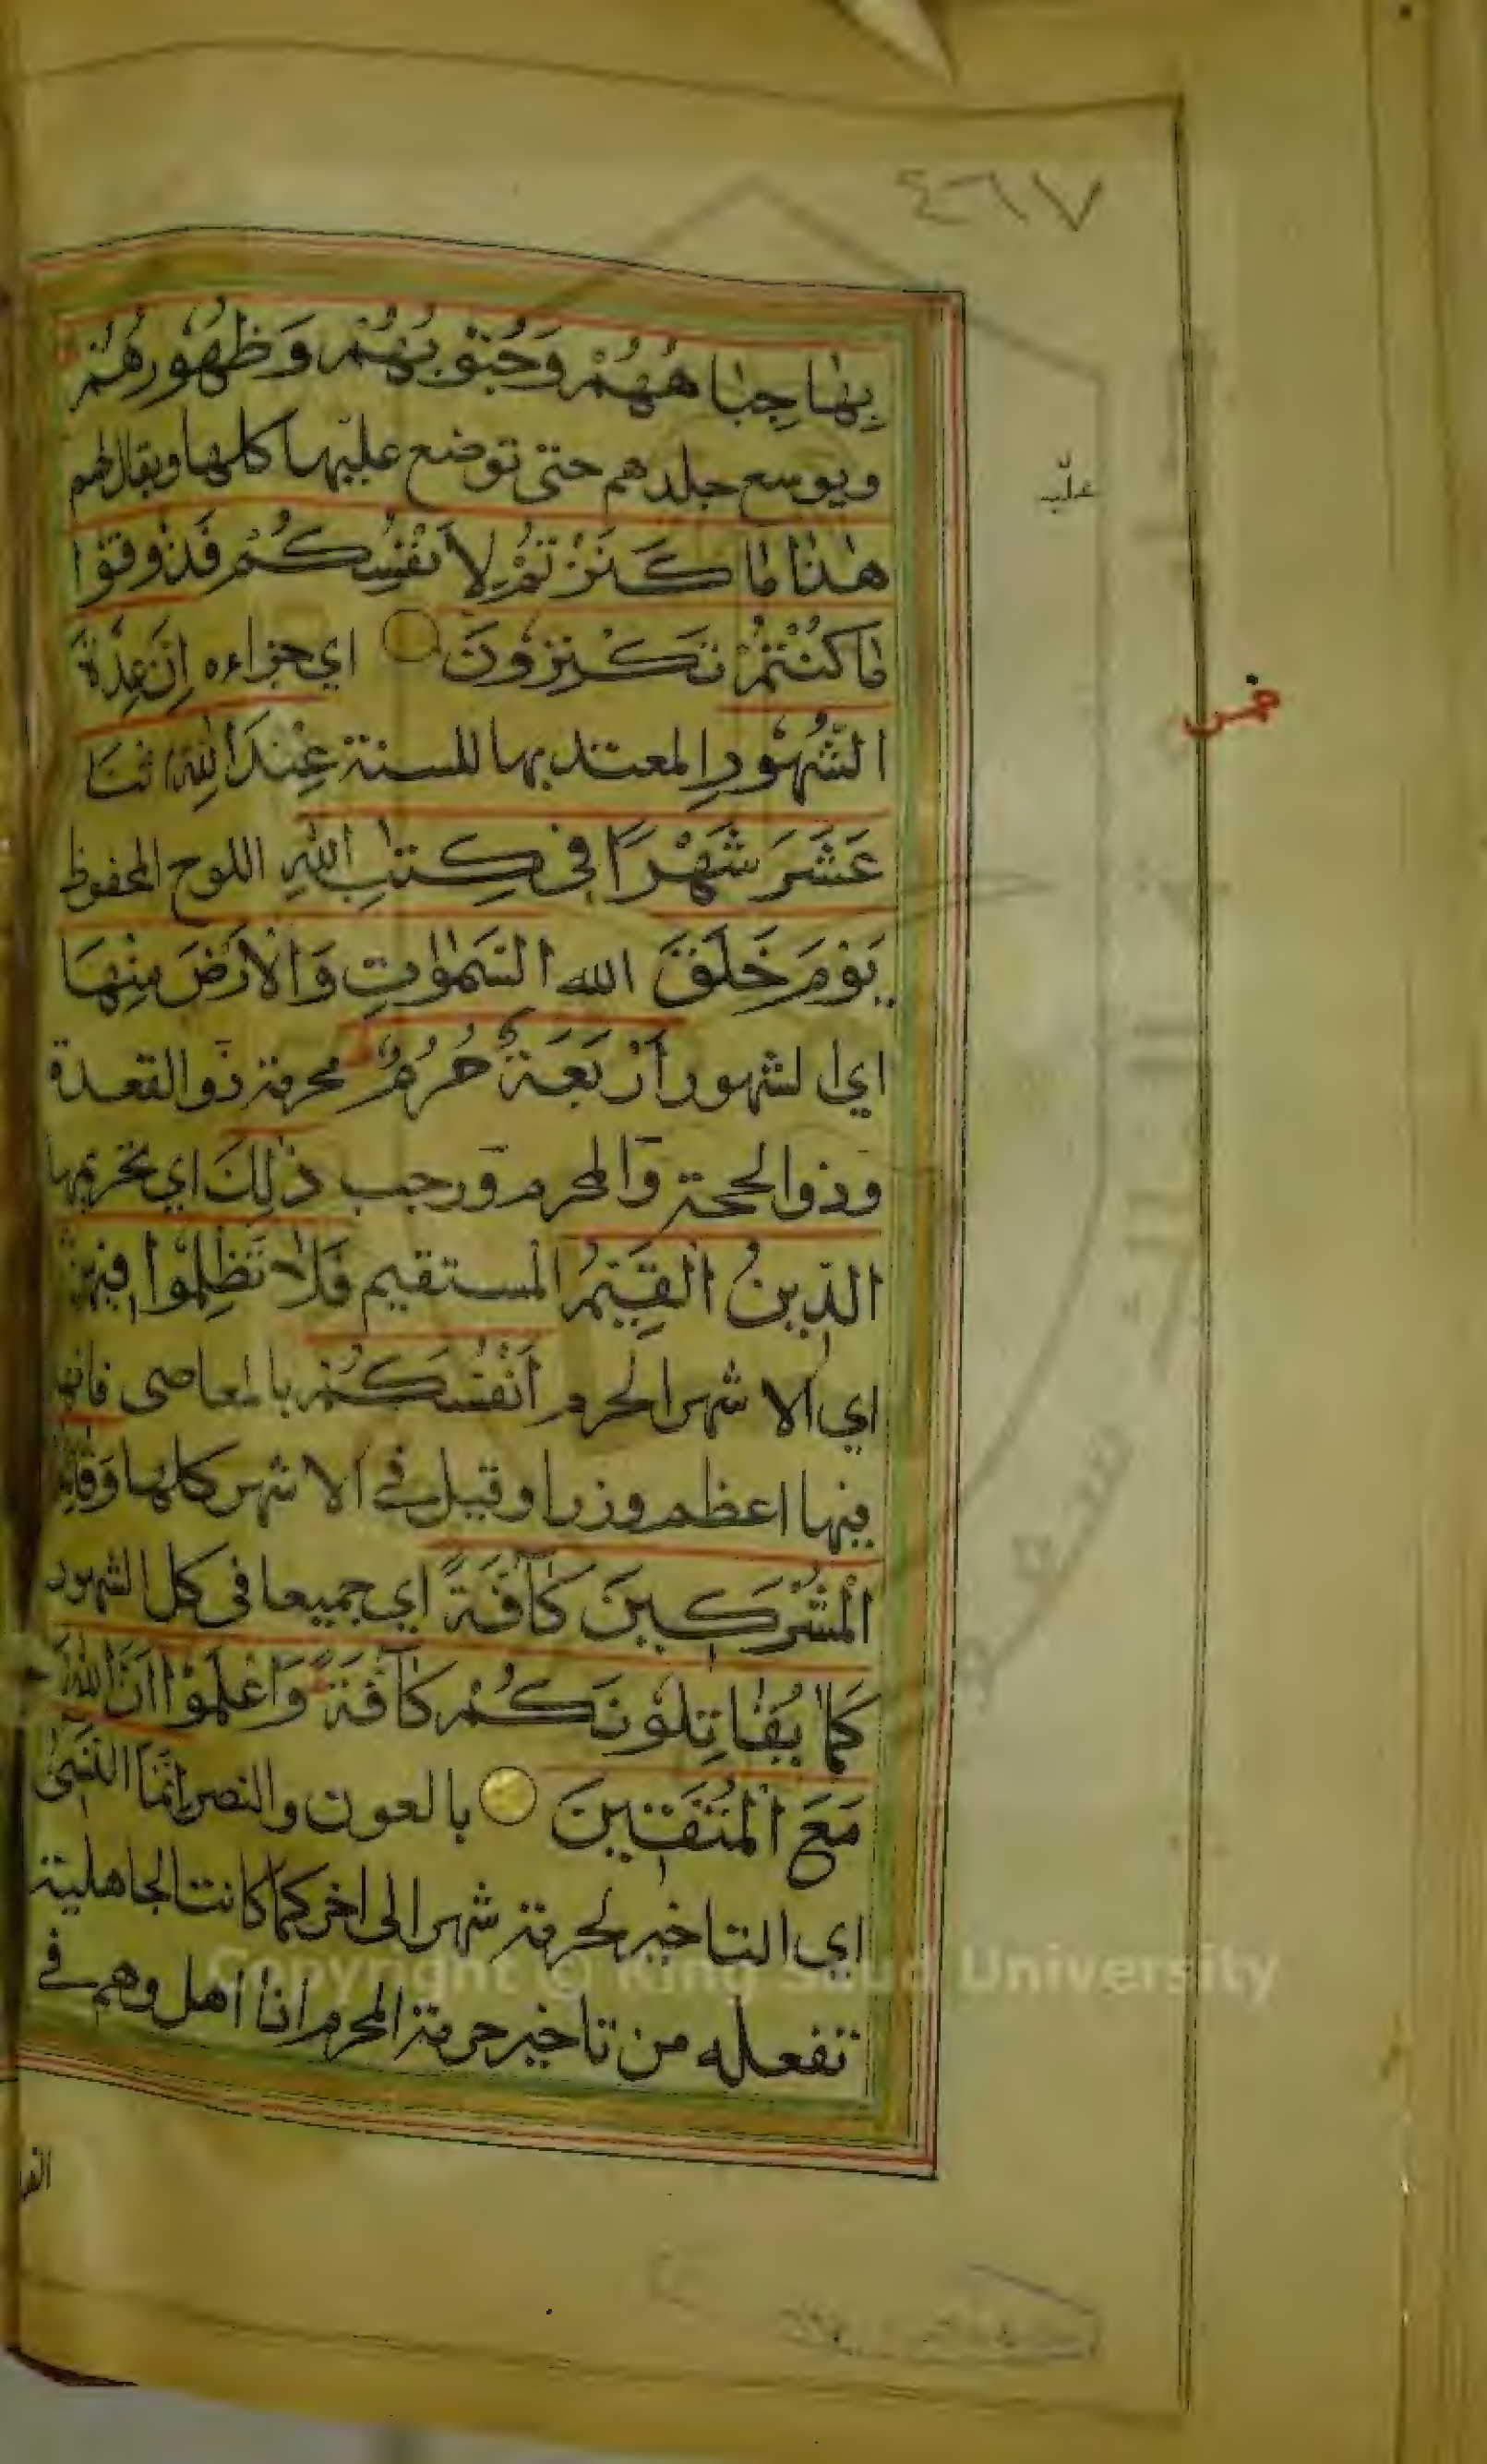 ٤٦٧
بِهَا جِبَاهُهُمْ وَجُنُوبُهُمْ وَظُهُورُهُمْ
ويوسع جلدهم حتى توضع عليها كلها ويقال لهم
هٰذَا مَا كَنَزْتُمْ لِأَنْفُسِكُمْ فَذُوقُوا
مَا كُنْتُمْ تَكْنِزُونَ اي جزاءه إِنَّ عِدَّةَ
الشُّهُورِ المعتد بها للسنة عِنْدَ اللّٰهِ اثْنَا
عَشَرَ شَهْرًا فِي كِتٰبِ اللّٰهِ اللوح المحفوظ
يَوْمَ خَلَقَ الله السَّمٰوٰتِ وَالْأَرْضَ مِنْهَا
اي الشهور أَرْبَعَةٌ حُرُمٌ محرمة ذو القعدة
وذو الحجة والمحرم ورجب ذٰلِكَ اي تحريمها
الدِّينُ الْقَيِّمُ المستقيم فَلَا تَظْلِمُوا فِيهِنَّ
اي الاشهر الحرم أَنْفُسَكُمْ بالمعاصى فانها
فيها اعظم وزرا وقيل في الاشهر كلها وَقَاتِلُوا
الْمُشْرِكِينَ كَآفَّةً اي جميعا في كل الشهور
كَمَا يُقَاتِلُونَكُمْ كَآفَّةً وَاعْلَمُوْا أَنَّ اللّٰهَ
مَعَ الْمُتَّقِينَ بالعون والنصر إِنَّمَا النَّسِيُ
اي التاخير لحرمة شهر الى اخر كما كانت الجاهلية
تفعله من تاخير حرمة المحرم اذا اهل وهم في
خمس
Copyright © King Saud University